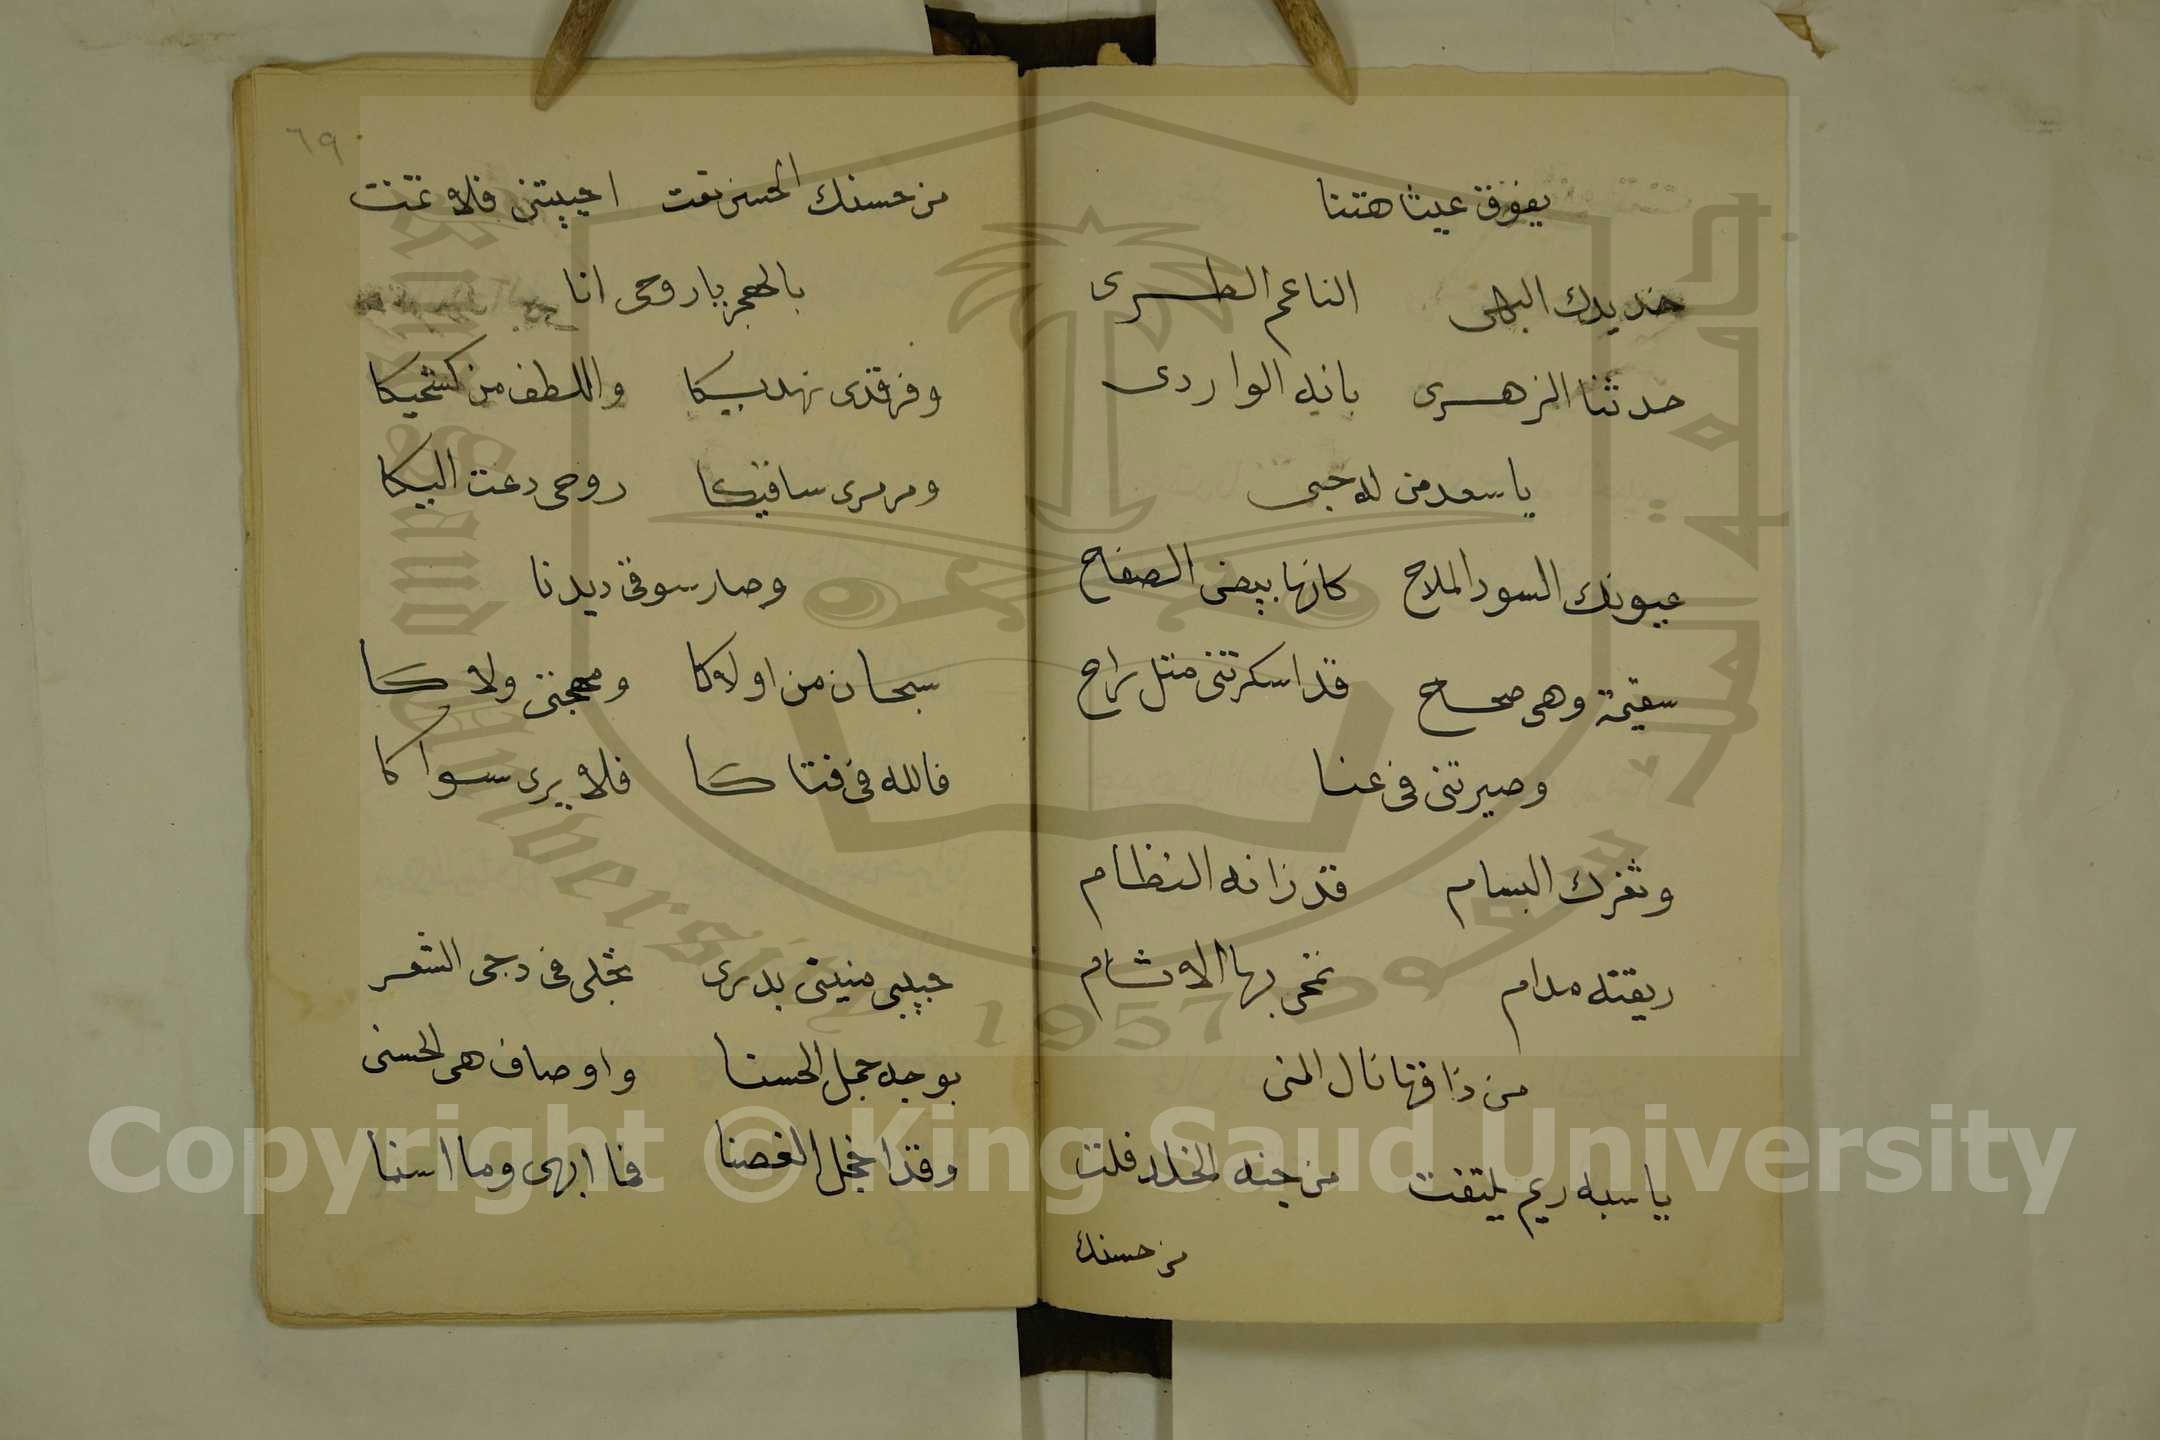 يفوق غيثا هتنا
خديدك البهى الناعم الطرى
حدثنا الزهرى بانه الواردى
يا سعد من له حبى
عيونك السود الملاح كانها بيض الصفاح
سقيمة وهى صحاح قد اسكرتنى مثل راح
وصيرتنى فى عنا
وثغرك البسام قد زانه النظام
ريقته مدام تحى بها الاشام
من ذاقها نال المنى
يا سبه ريم يلتفت من جنه الخلد فلت
من حسنك
٦٩
من حسنك الحسن نعت احييتنى فلا تمت
بالهجر يا روحى انا
وفرقدى نهديكا واللطف من كشحيكا
ومرمرى ساقيكا روحى دعت اليكا
وصار سوقى ديدنا
سبحان من اولاكا ومهجتى ولاكا
فالله فى فتاكا فلا يرى سواكا
حبيبى منيتى بدرى تجلى فى دجى الشعر
بوجه جمل الحسنا واوصاف هى الحسنى
وقد اخجل الغصنا فما ابهى وما اسنا
جامعة الملك سعود
King Saud University
1957
Copyright © King Saud University